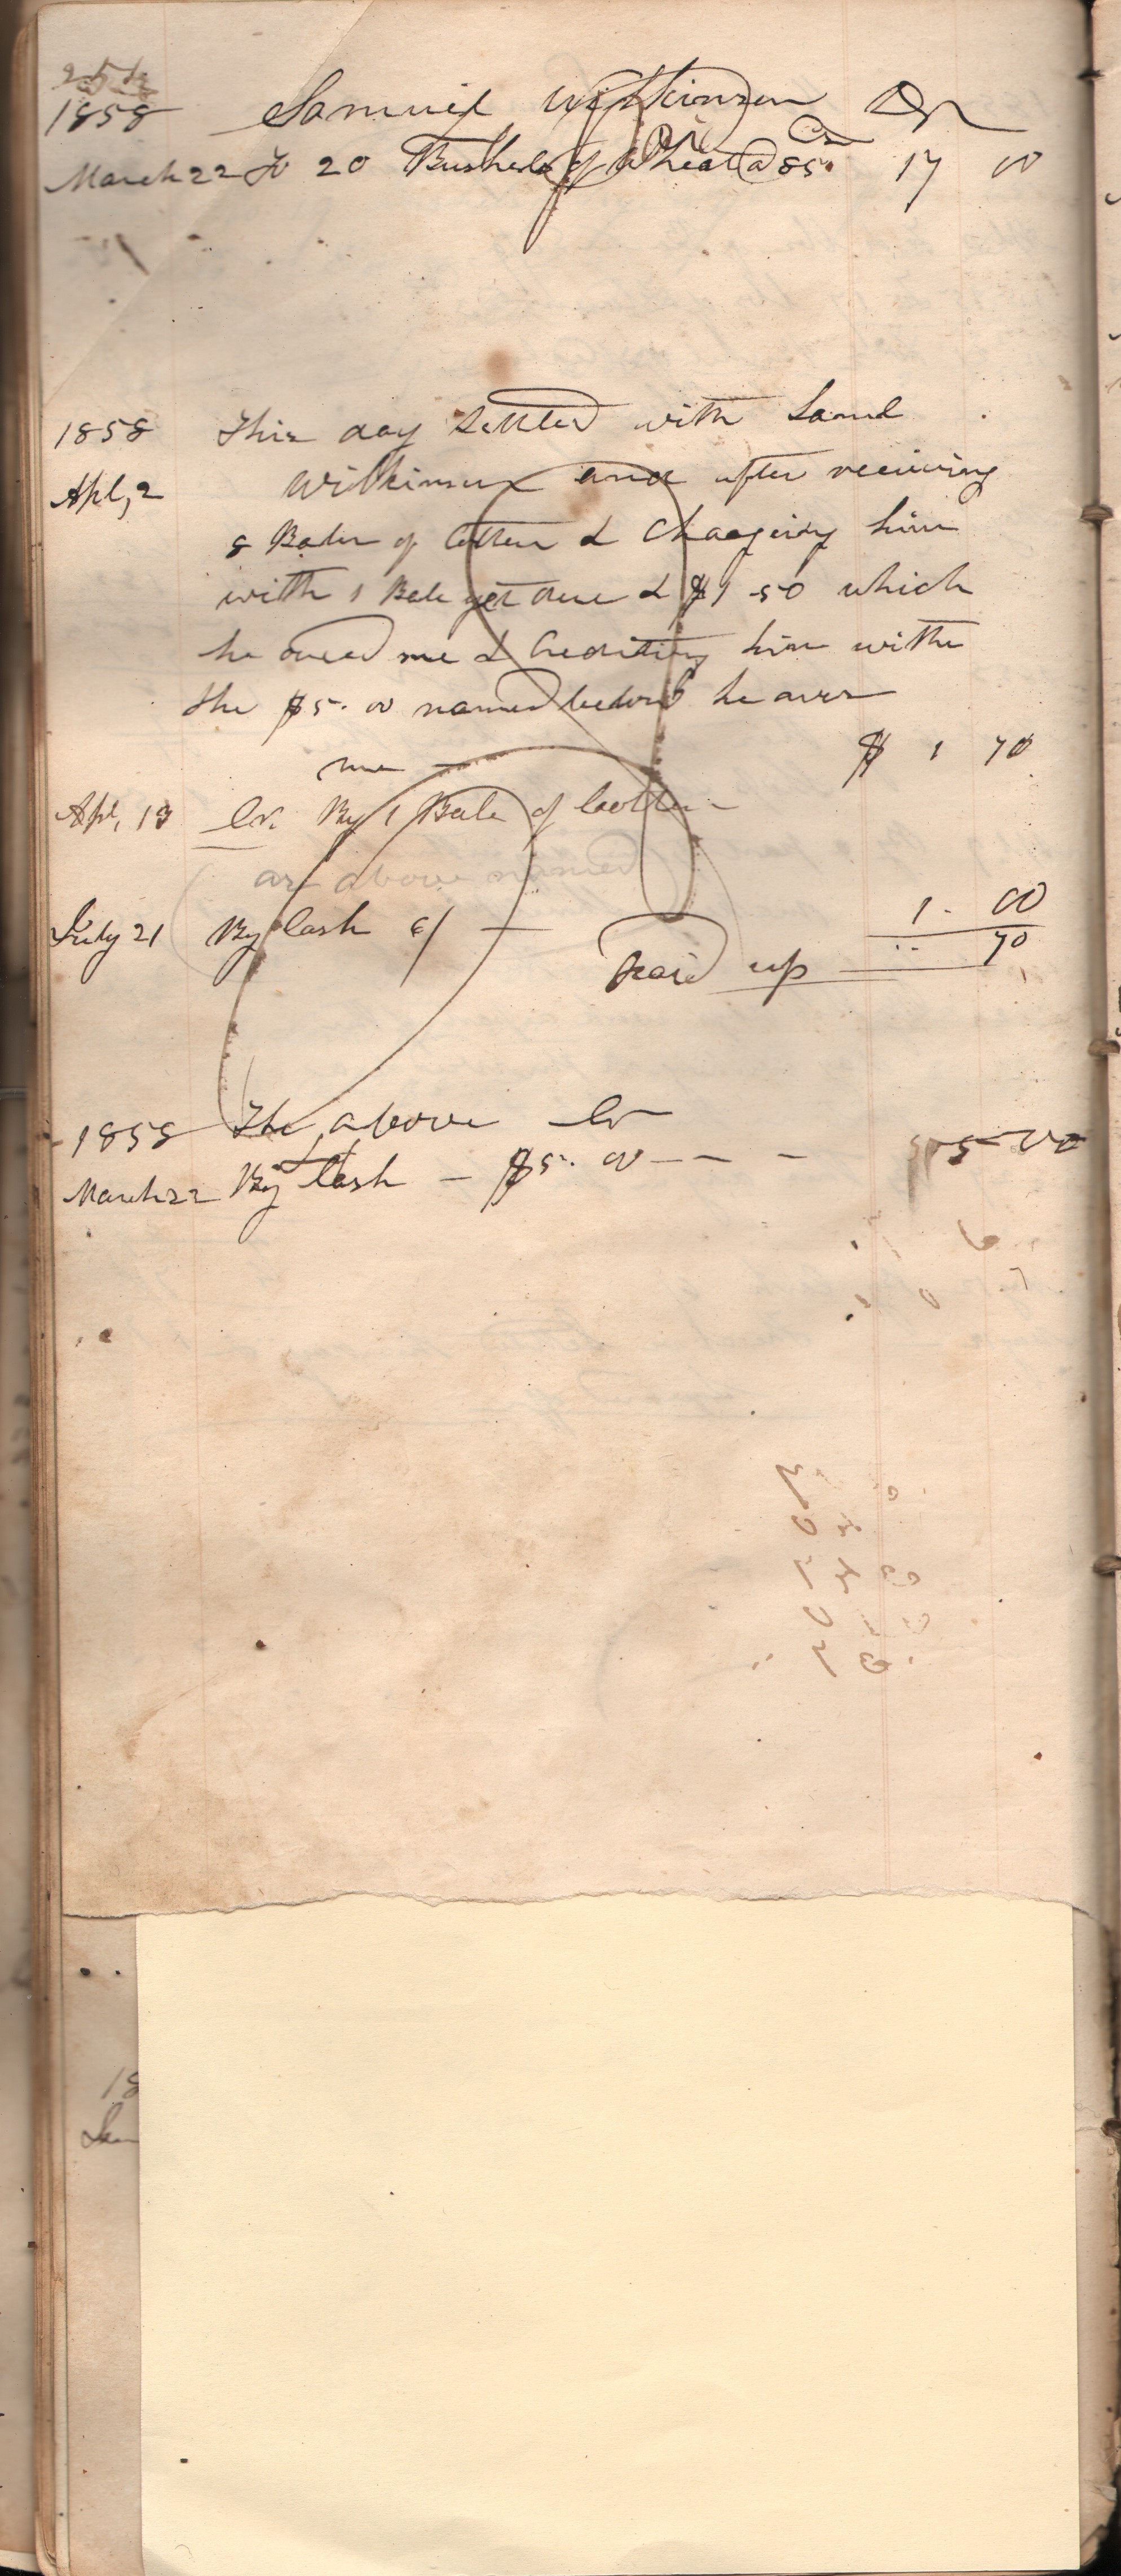 254
1858 Samuel Wilkinson Dr
March 22 To 20 Bushels of Wheat @ 85 Cs 17 00
1858 This day settled with Saml
Apl, 2 Wilkinson and after receiving
8 Bales of Cotton & Chargeing him
with 1 Bale yet due & $1-50 which
he owed me & Crediting him with
the $5.00 named below he owes
me — $ 1 70
Apl, 13 Cr. By 1 Bale of Cotton
as above named
July 21 By Cash of — 1. 00
Paid up 70
1858 The above Cr
March 22 By Cash — $5.00 — — — 5 00
18
Jan